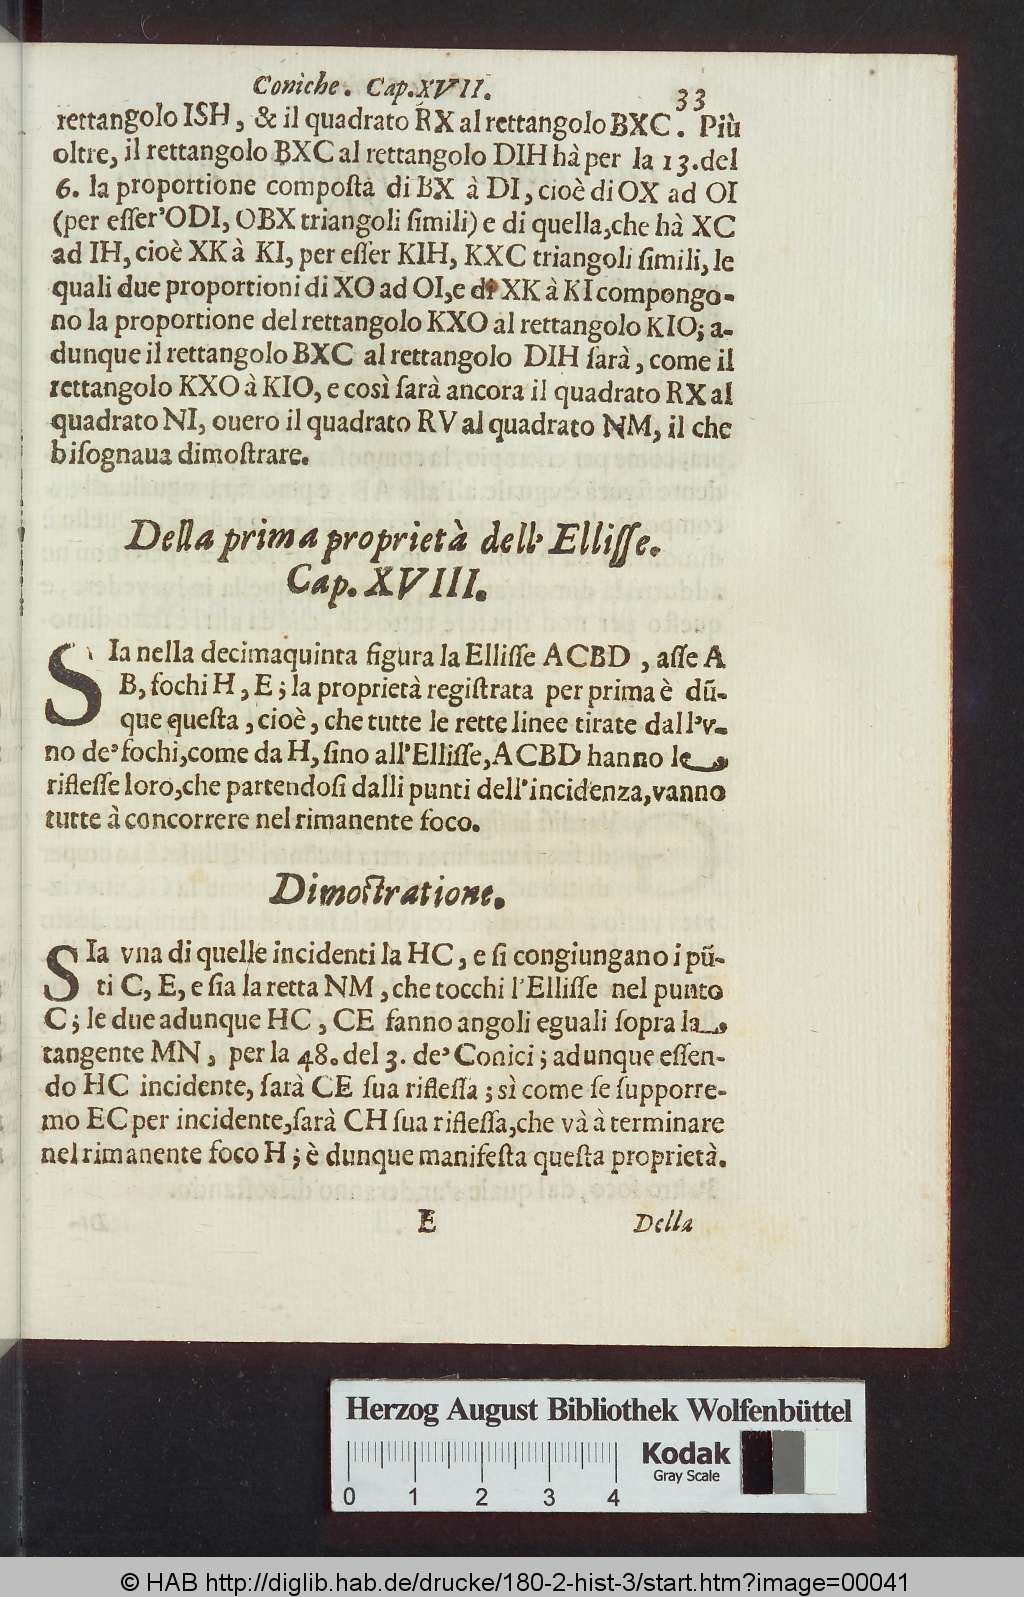 Coniche. Cap. XVII. 33
rettangolo ISH, & il quadrato RX al rettangolo BXC. Più
oltre, il rettangolo BXC al rettangolo DIH hà per la 13. del
6. la proportione composta di BX à DI, cioè di OX ad OI
(per esser' ODI, OBX triangoli simili) e di quella, che hà XC
ad IH, cioè XK à KI, per esser KIH, KXC triangoli simili, le
quali due proportioni di XO ad OI, e di XK à KI compongo-
no la proportione del rettangolo KXO al rettangolo KIO; a-
dunque il rettangolo BXC al rettangolo DIH sarà, come il
rettangolo KXO à KIO, e così sarà ancora il quadrato RX al
quadrato NI, ouero il quadrato RV al quadrato NM, il che
bisognaua dimostrare.
Della prima proprietà dell' Ellisse.
Cap. XVIII.
SIa nella decimaquinta figura la Ellisse ACBD, asse A
B, fochi H, E; la proprietà registrata per prima è dũ-
que questa, cioè, che tutte le rette linee tirate dall'v-
no de' fochi, come da H, sino all'Ellisse, ACBD hanno le
riflesse loro, che partendosi dalli punti dell'incidenza, vanno
tutte à concorrere nel rimanente foco.
Dimostratione.
SIa vna di quelle incidenti la HC, e si congiungano i pũ-
ti C, E, e sia la retta NM, che tocchi l'Ellisse nel punto
C; le due adunque HC, CE fanno angoli eguali sopra la
tangente MN, per la 48. del 3. de' Conici; adunque essen-
do HC incidente, sarà CE sua riflessa; sì come se supporre-
mo EC per incidente, sarà CH sua riflessa, che và à terminare
nel rimanente foco H; è dunque manifesta questa proprietà.
E Della
Herzog August Bibliothek Wolfenbüttel
Kodak
Gray Scale
0 1 2 3 4
© HAB http://diglib.hab.de/drucke/180-2-hist-3/start.htm?image=00041